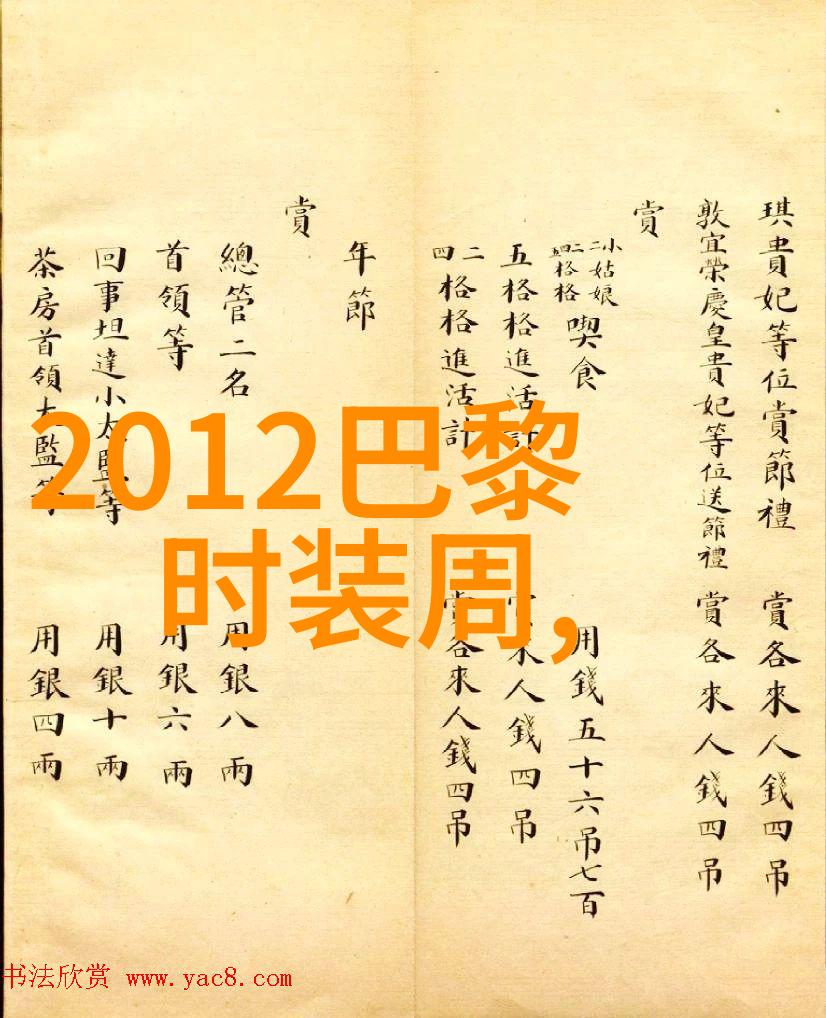 琪貴妃等位賞節禮 賞各來人錢四吊
敦宜榮慶皇貴妃等位送節禮 賞各來人錢四吊
賞
小姑娘
二二格格
四五格格
喫食 用錢五十六吊七百
五格格進活計 賞來人錢四吊
二四格格進活計 賞各來人錢四吊
年節
賞
總管二名 用銀八兩
首領等 用銀六兩
回事坦達小太監等 用銀十兩
茶房首領太監等 用銀四兩
2012巴黎
时装周,
书法欣赏 www.yac8.com